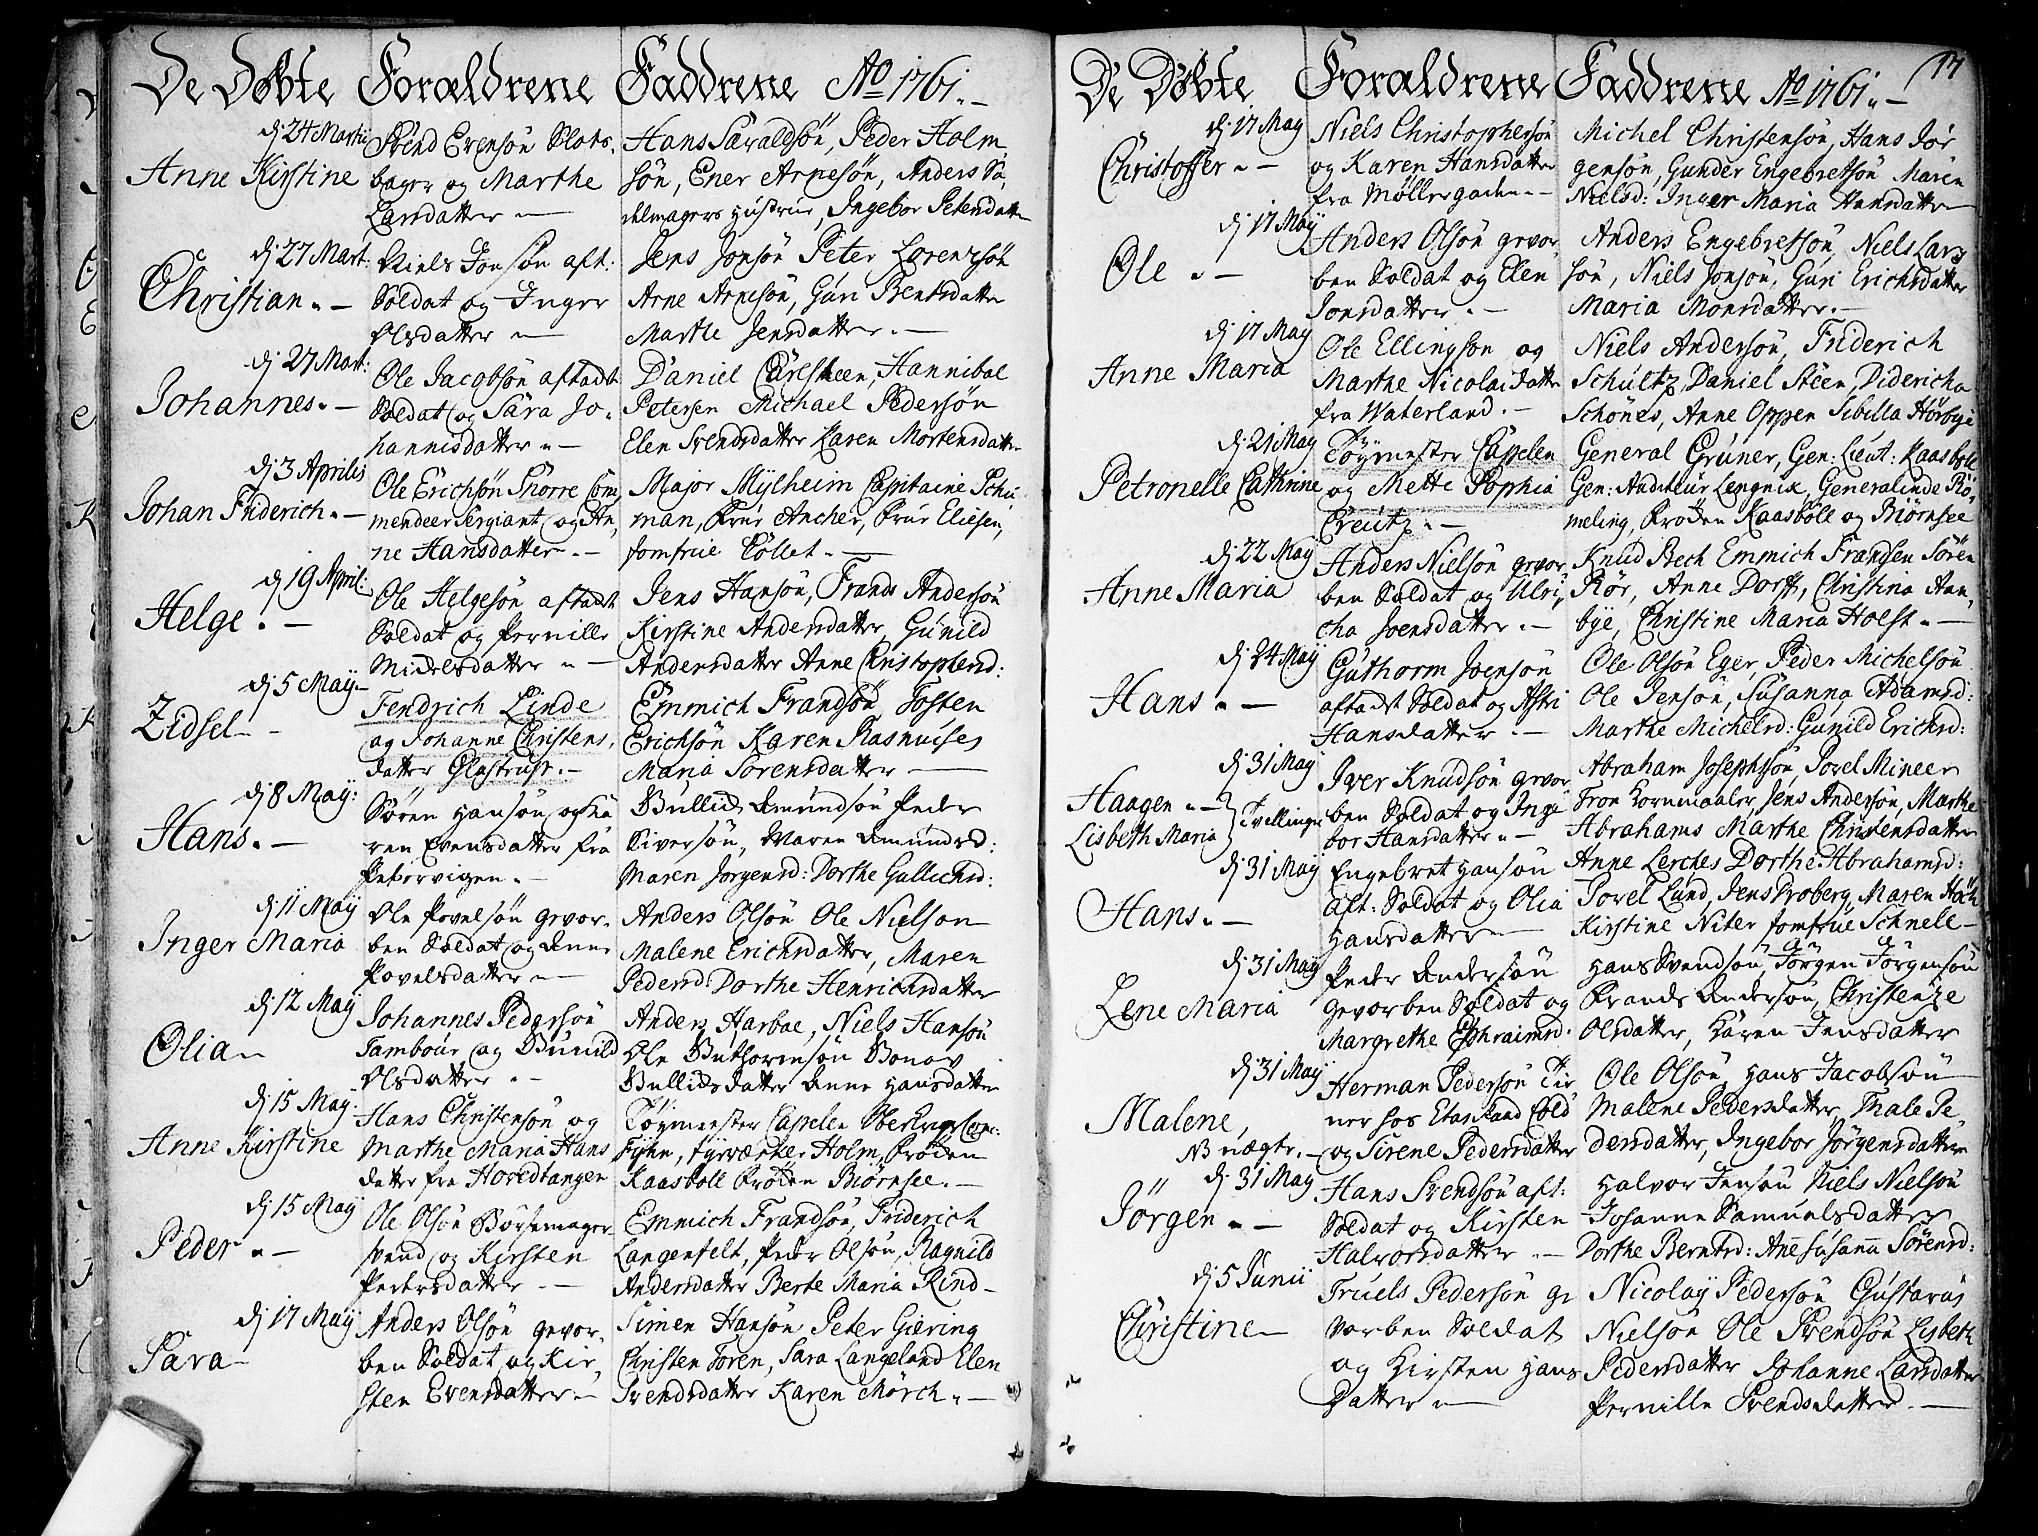 De Døbte Forældrene Faddrene Ao 1761.
dj 24 Martij
Anne Kirstine
Svend Evensön Slots-
bager og Marthe
Larsdatter
Hans Saraldsön, Peder Holm
sön, Ener Arnesön, Anders Sa,
delmagers Hustrue, Ingebor Petersdatter
dj 27 Mart:
Christian.
Niels Jonsøn aft:
Soldat og Inger
Olsdatter
Jens Jonsön Peter Lorenzsön
Arne Arnesön, Guri Bentsdatter
Marthe Jensdatter.
dj 27 Mart:
Johannes.
Ole Jacobsön aftadt
Soldat og Sara Jo-
hannisdatter
Daniel Carlsteen, Hannibal
Petersen Michael Pedersön
Elen Svendsdatter Karen Mortensdatter
dj 3 Aprilis
Johan Friderich.
Ole Erichsön Snorre Com
mendeer Sergiant, og An,
ne Hansdatter.
Major Mylheim Capitaine Schu
man, Frue Ancher, Frue Eliesen,
Jomfrue Collet.
dj 19 April:
Helge.
Ole Helgesön aftadt
Soldat og Pernille
Michelsdatter
Jens Hansön, Frands Andersön
Kirstine Andersdatter, Gunild
Andersdatter Anne Christophersd:
dj 5 May
Zidsel
Fendrich Linde
og Johanne Christens,
datter Glostrup.
Emmich Frandsön Tosten
Erichsön Karen Rasmuses
Maria Sørensdatter
dj 8 May:
Hans.
Sören Hansön og Ka
ren Evensdatter fra
Pipervigen.
Gullich Amundsön Peder
Siversön, Maren Amundsd:
Maren Jörgensd: Dorthe Gullichsd:
dj 11 May
Inger Maria
Ole Povelsön gevor-
ben Soldat og Anne
Povelsdatter
Anders Olsön Ole Nielson
Malene Erichsdatter, Maren
Pedersd: Dorthe Henrichsdatter
dj 12 May
Olia
Johannes Pedersön
Tambour og Gunild
Olsdatter.
Anders Harboe, Niels Hansön
Ole Guthormsön
Gullichsdatter Anne Hansdatter
dj 15 May
Anne Kirstine
Hans Christensön og
Marthe Maria Hans
datter fra Hovedtangen
Töymester Cappelen Oberkriegs Com:
Fyhn, fyrværker Holm, Fröken
Kaasböll Fröken Biörnsee.
dj 15 May
Peder.
Ole Olsön Börsemager
svend og Kirsten
Pedersdatter
Emmich Frandsön, Friderich
Langenfelt, Peder Olsön, Ragnild
Andersdatter Berte Maria Rind
dj 17 May
Sara
Anders Olsön gevor-
ben Soldat og Kir,
sten Evensdatter
Simen Hansön Peter Giering
Christen Toren, Sara Langeland Elen
Svendsdatter Karen Mörch.
17
De Døbte Forældrene Faddrene Ao 1761.
dj 17 May
Christoffer.
Niels Christophersön
og Karen Hansdatter
fra Møllergaden.
Michel Christensön, Hans Jör
gensön, Gunder Engebretsön Maren
Nielsd: Inger Maria Hansdatter
dj 17 May
Ole.
Anders Olsön gevor
ben Soldat og Elen
Jonsdatter.
Anders Engebretsön, Niels Lars
sön, Niels Jonsön, Guri Erichsdatter
Maria Monsdatter.
dj 17 May
Anne Maria
Ole Ellingsön og
Marthe Nicolaidatter
fra Waterland.
Niels Andersön, Friderich
Schultz, Daniel Steen, Didericha
Schönes, Anne Oppen Sibilla Hörbye
dj 21 May
Petronelle Cathrine
Töymester Cappelen
og Mette Sophia
Creutz.
General Grüner, Gen: Lieut: Kaasböll
Gen: Auditeur Lengnik, Generalinde Rö,
meling, Fröken Kaasböll og Biörnsee
dj 22 May
Anne Maria
Anders Nielsön gevor
ben Soldat og Ulri,
cha Joensdatter.
Knud Bech Emmich Frandsen Sören
Rör, Anne Dorff, Christina Aan,
bye, Christine Maria Holst.
dj 24 May
Hans.
Guthorm Joensön
aftadt Soldat og Astri
Hansdatter.
Ole Olsön Eger, Peder Michelsön
Ole Jensön, Susanna Adamsd:
Marthe Michelsd: Gunild Erichsd:
dj 31 May
Haagen.
Lisbeth Maria } Tvillinger
Iver Knudsön gevor
ben Soldat og Inge
bor Hansdatter.
Abraham Josephsön, Povel Mineer
Tron Kornmaaler, Jens Andersön, Marthe
Abrahams Marthe Christensdatter
dj 31 May
Hans.
Engebret Hansön
aft: Soldat og Olia
Hansdatter
Anne Lerches Dorthe Abrahamsd:
Povel Lund, Jens Froberg, Maren Höch
Kirstine Niter Jomfrue Schnell
dj 31 May
Lene Maria
Peder Andersön
Gevorben Soldat og
Margrethe Ephraimsd:
Hans Svendsön, Jörgen Jörgensön
Frands Andersön, Christenze
Olsdatter, Karen Jensdatter
dj 31 May
Malene,
NB uægte.
Herman Pedersön Tie
ner hos Etatsraad Cold
og Sirene Pedersdatter
Ole Olsön, Hans Jacobsön
Malene Pedersdatter, Thale Pe
dersdatter, Ingebor Jörgensdatter
dj 31 May
Jörgen.
Hans Svendsön aft:
Soldat og Kirsten
Halvorsdatter.
Halvor Jensön Niels Nielsön
Johanne Samuelsdatter
Dorthe Berntsd: Anne Susanna Sörensd:
dj 5 Junij
Christine
Truels Pedersön ge
vorben Soldat
og Kirsten Hans
Datter
Nicolay Pedersön Gustavus
Nielsön Ole Svendsön Lisbeth
Pedersdatter Johanne Larsdatter
Pernille Svendsdatter.